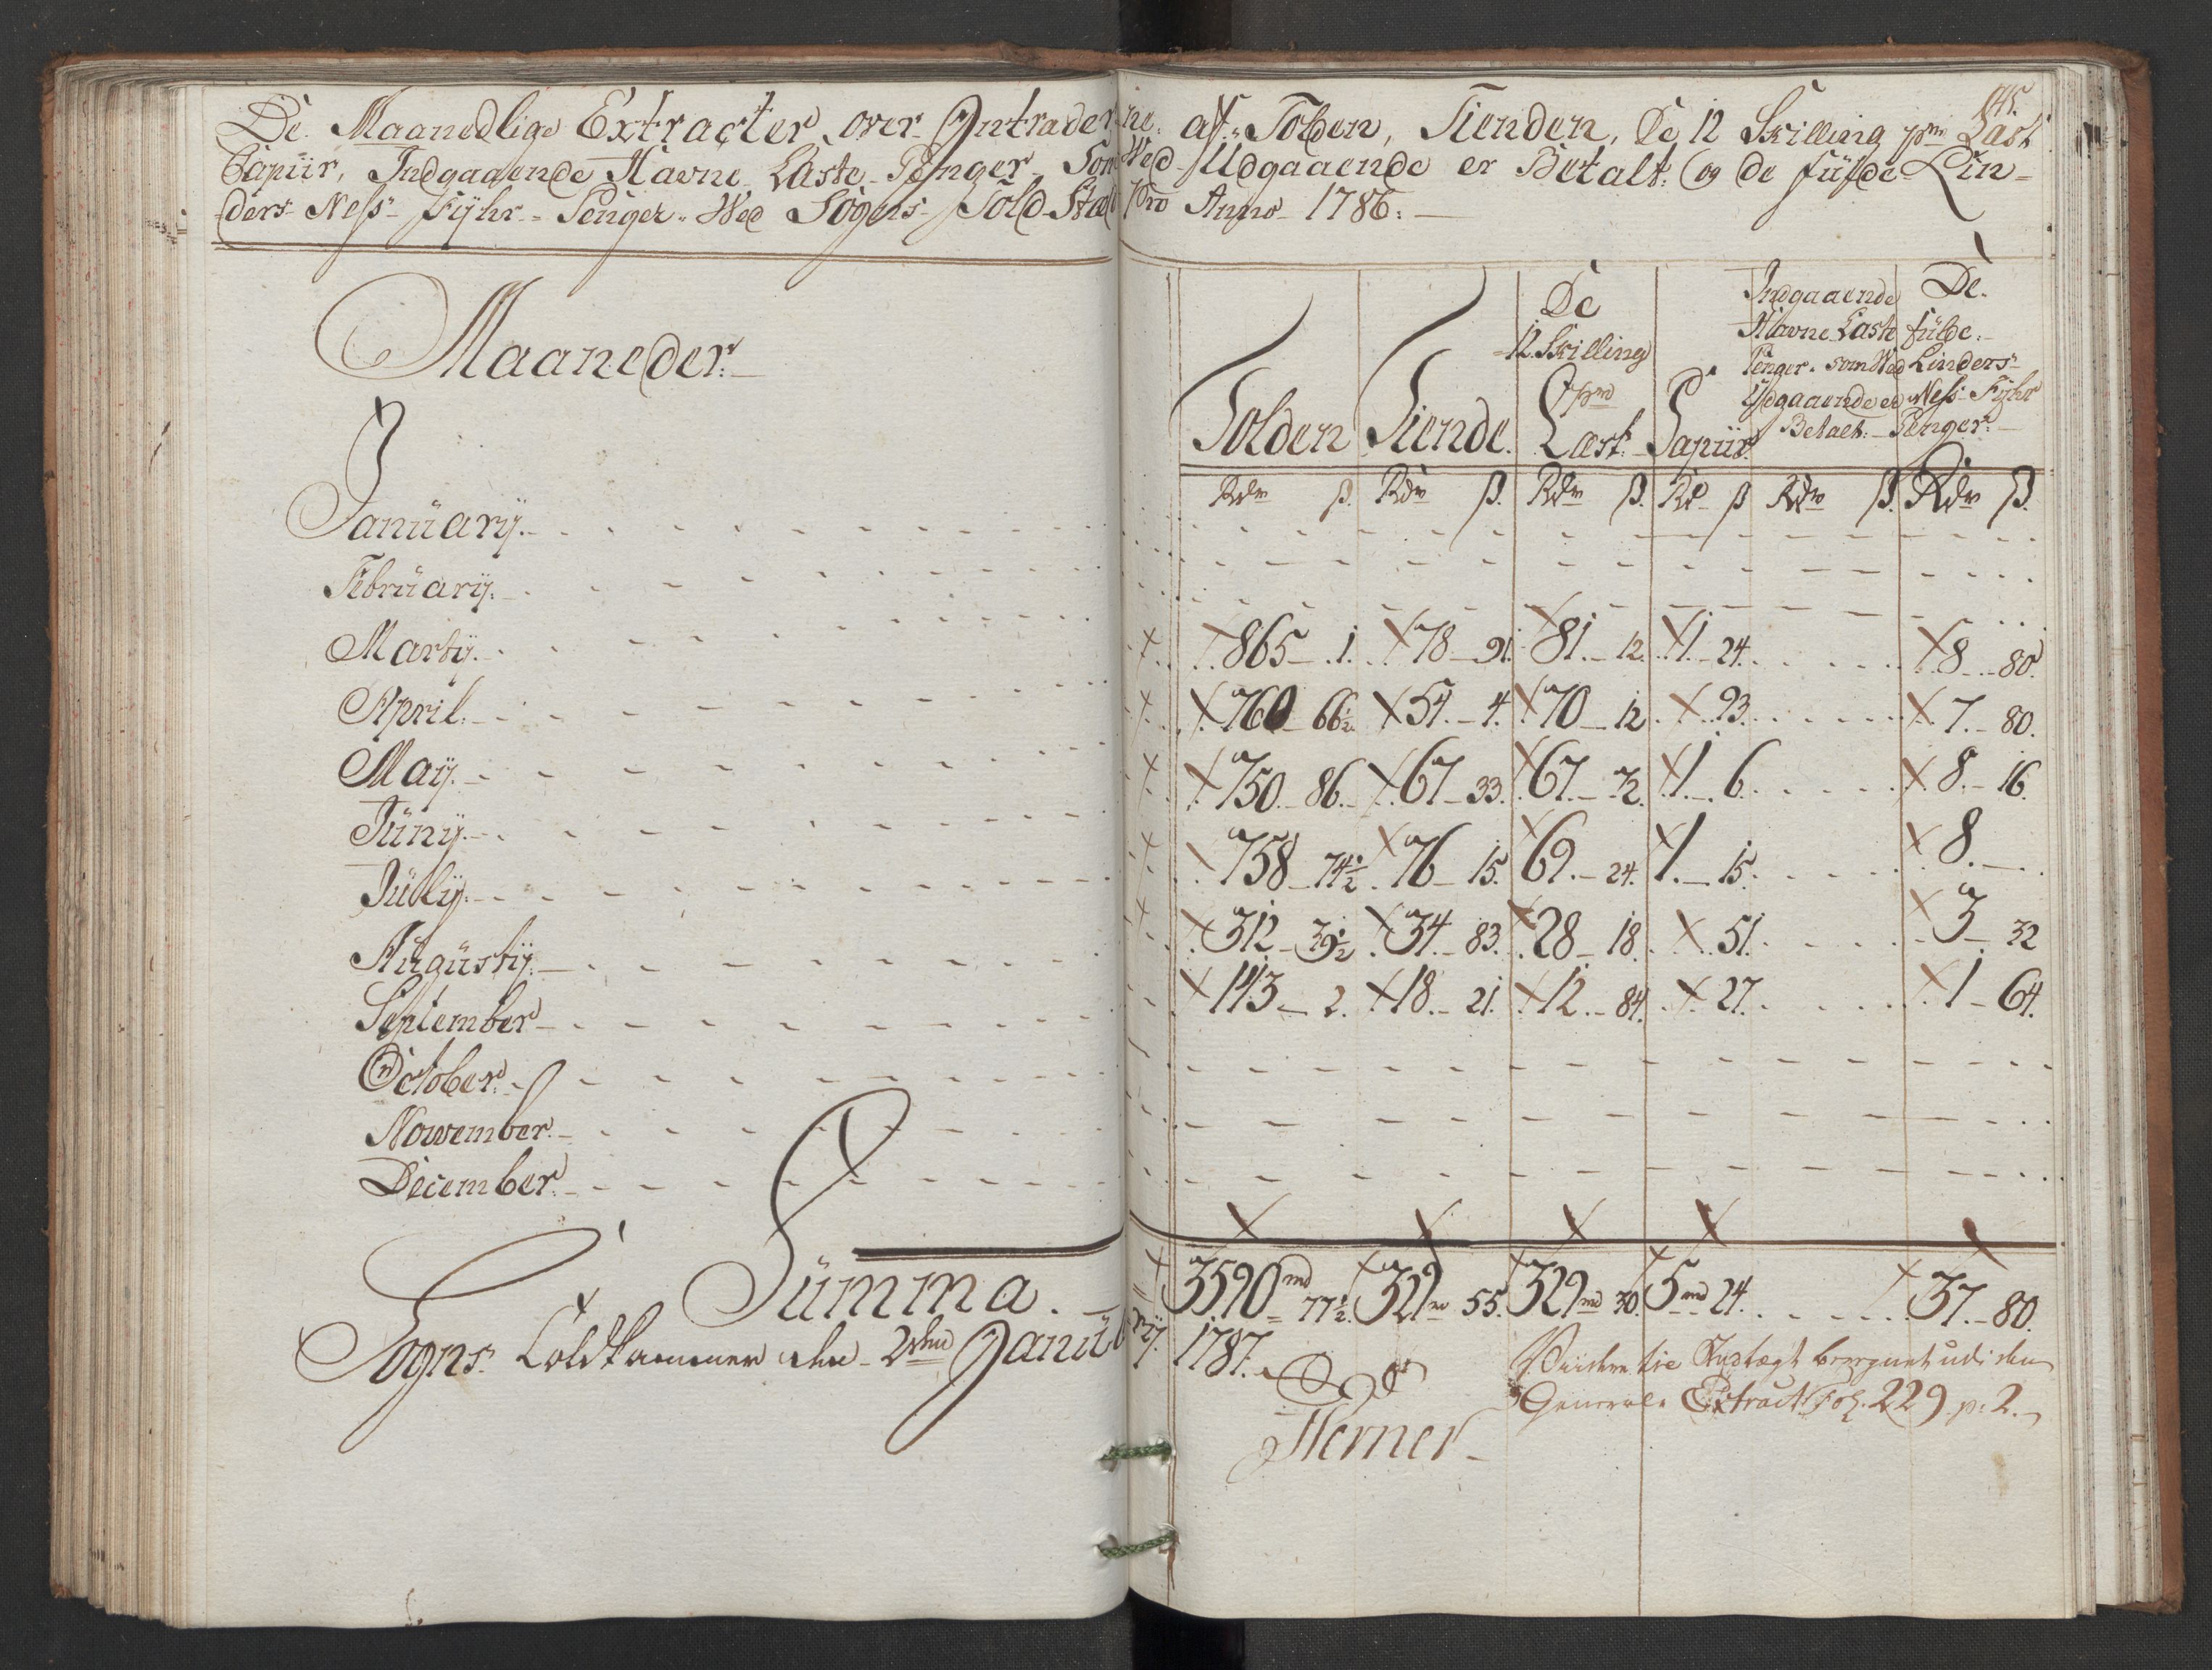 145.
De Maanedlige Extracter over Intraderne af Tolden, Tienden, De 12 Skilling pr Læst
Papiir, Indgaaende Havne Læste Penger Som Wed Udgaaende er Betalt: og de fülde Lin-
ders Ness Fÿhr Penger Wed Sogens Told Stæd Pro Anno 1786:
Maaneder:
Tolden
Tiende.
De 12 Skilling pr Læst
Papiir
Indgaaende Havne Læste Penger som Wed Udgaaende er Betalt:
De fülde Linders Ness Fÿhr Penger:
Rdr ß. Rdr ß. Rdr ß. Rd ß Rdr ß. Rdr ß.
Janüarÿ.
Februarÿ.
Martÿ. 865 - 1. 78 - 91. 81 - 12. 1 - 24. 8 - 80.
April. 760 66½ 54 - 4. 70 - 12. 93. 7 - 80.
Maÿ. 750 - 86. 67 - 33. 67 - 72. 1 - 6. 8 - 16.
Jünÿ. 758 - 74½. 76 - 15. 69 - 24. 1 - 15. 8.
Jülÿ. 312 - 39½. 34 - 83. 28 - 18. 51. 3 - 32
Augüstÿ. 143 - 2. 18 - 21. 12 - 84. 27. 1 - 64.
September
October.
Nowember.
December.
Sümma. 3590 77½. 329 55. 329 30. 5 24. 37 - 80.
Sogns Toldkammer den 2den Janüarÿ. 1787.
Werner
Generale Extract Fol. 229 p: 2.